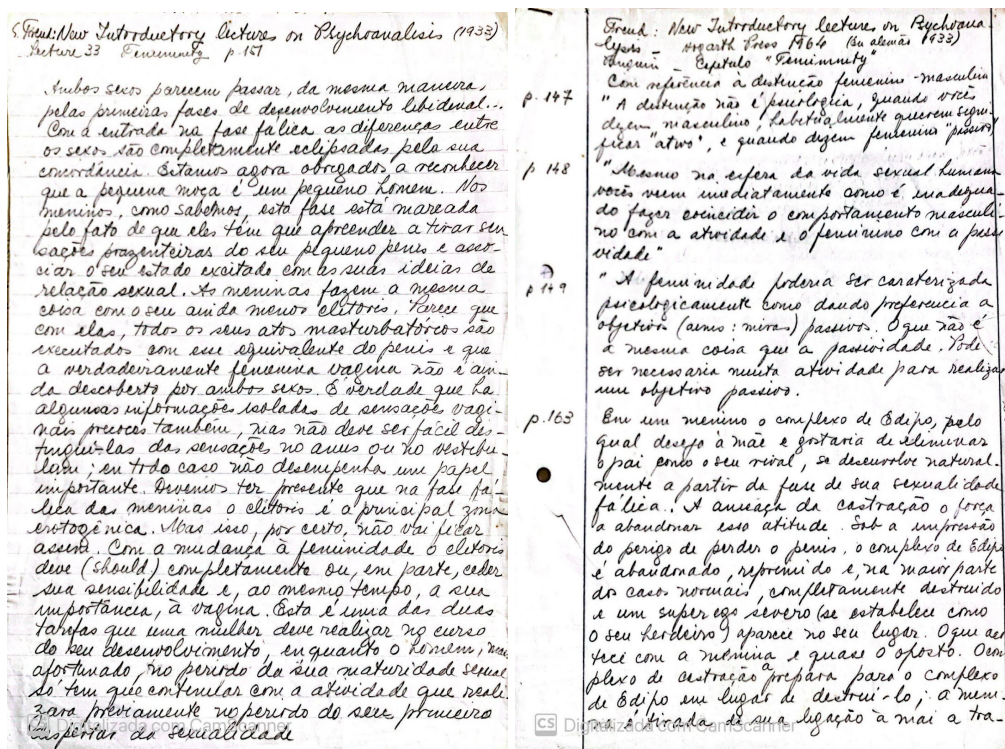 S. Freud: New Introductory lectures on Psychoanalisis (1933)
Lecture 33 Femeninity p 151
Ambos sexos parecem passar, da mesma maneira,
pelas primeiras fases de desenvolvimento libidinal...
Com a entrada na fase fálica as diferenças entre
os sexos são completamente eclipsadas pela sua
concordância. Estamos agora obrigados a reconhecer
que a pequena moça é um pequeno homem. Nos
meninos, como sabemos, esta fase está marcada
pelo fato de que eles têm que apreender a tirar sen
sações prazenteiras do seu pequeno penis e asso-
ciar o seu estado excitado com as suas ideias de
relação sexual. As meninas fazem a mesma
coisa com o seu ainda menos clitoris. Parece que
com elas, todos os seus atos masturbatórios são
executados com esse equivalente do penis e que
a verdadeiramente femenina vagina não é ain-
da descoberta por ambos sexos. É verdade que ha
algumas informações isoladas de sensações vagi-
nais precoces também, mas não deve ser fácil dis-
tingui-las das sensações no anus ou no vestibu-
lum; en todo caso não desempenha um papel
importante. Devemos ter presente que na fase fá-
lica das meninas o clitoris é a principal zona
erotogênica. Mas isso, por certo, não vai ficar
assim. Com a mudança à feminidade o clitoris
deve (should) completamente ou, em parte, ceder
sua sensibilidade e, ao mesmo tempo, a sua
importância, à vagina. Esta é uma das duas
tarefas que uma mulher deve realizar no curso
do seu desenvolvimento, enquanto o homem, mais
afortunado, no periodo da sua maturidade sexual
só tem que continuar com a atividade que reali
zara previamente no periodo do seu primeiro
despertar da sexualidade
CS Digitalizada com CamScanner
Freud: New Introductory lectures on Psychoana
lysis - Hogarth Press 1964 (En alemão 1933)
Penguin - Capitulo "Femimnity"
Com referência à distinção femenino-masculin
p. 147
"A distinção não é psicologica, quando vocês
dizem masculino, habitualmente querem signi-
ficar "ativo", e quando dizem femenino "passivo"
p 148
"Mesmo na esfera da vida sexual humana
vocês vêem imediatamente como é inadequa-
do fazer coincidir o comportamento masculi-
no com a atividade e o feminino com a passi
vidade"
p 149
"A feminidade poderia ser caraterizada
psicologicamente como dando preferencia a
objetivos (aims: miras) passivos. O que não é
a mesma coisa que a passividade. Pode
ser necessaria muita atividade para realizar
um objetivo passivo.
p. 163
Em um menino o complexo de Edipo, pelo
qual deseja à mãe e gostaria de eliminar
o pai como o seu rival, se desenvolve natural-
mente a partir da fase de sua sexualidade
fálica. A ameaça da castração o força
a abandonar essa atitude. Sob a impressão
do perigo de perder o penis, o complexo de Edipo
é abandonado, reprimido e, na maior parte
dos casos normais, completamente destruido
e um super ego severo (se estabelece como
o seu herdeiro) aparece no seu lugar. O que acon
tece com a menina é quase o oposto. O com
plexo de castração a prepara para o complexo
de Edipo em lugar de destrui-lo; a meni-
na é tirada de sua ligação à mai a tra-
CS Digitalizada com CamScanner